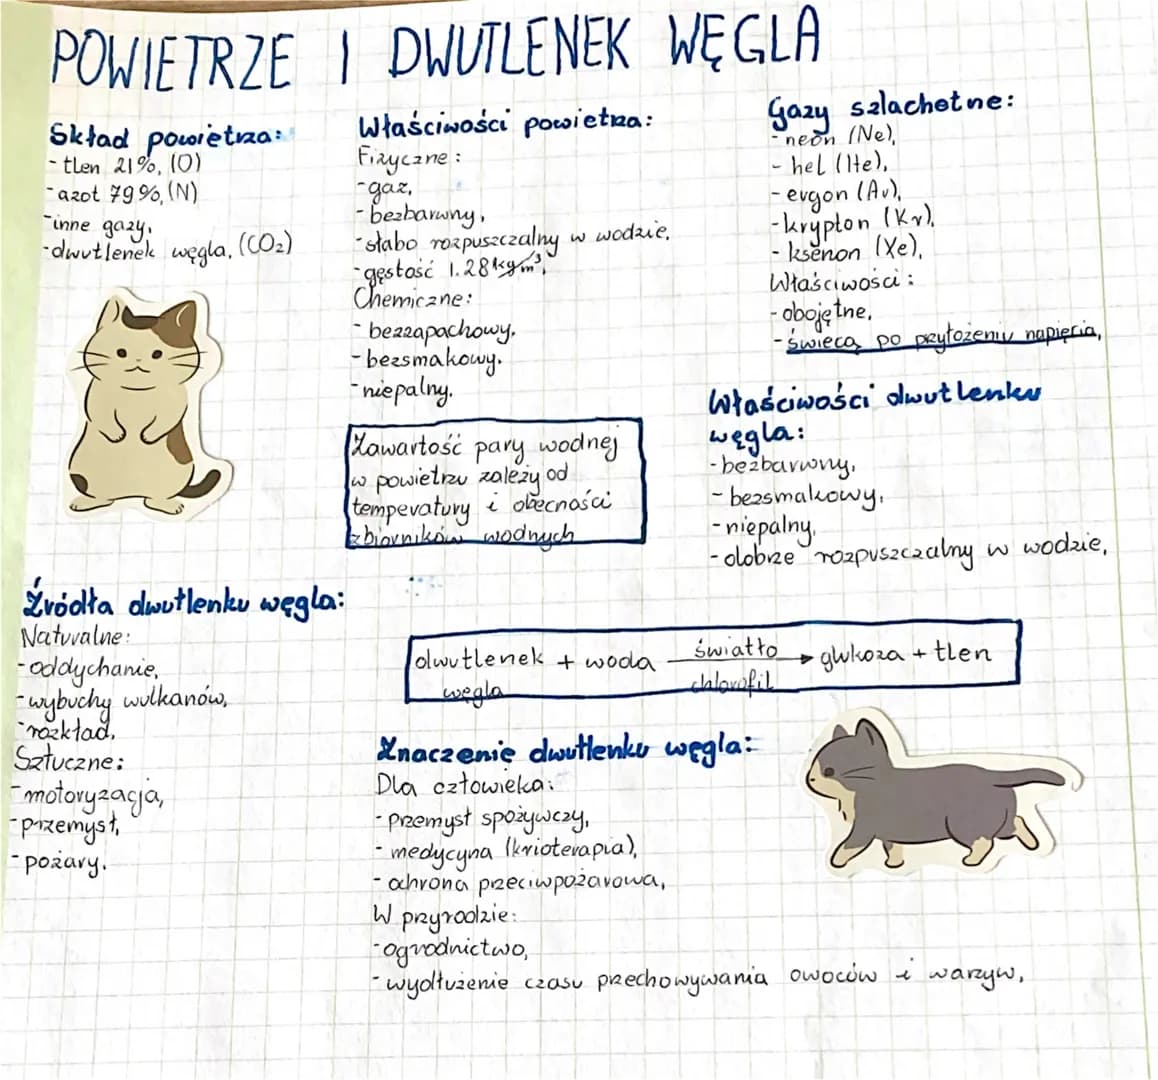 POWIETRZE I DWUTLENEK WĘGLA
Skład powietrza:
- tlen 21%, (O)
- azot 79%, (N)
- inne gazy,
- dwutlenek węgla, (CO₂)
Właściwości powietrza:
Fizyczne:
- gaz,
- bezbarwny,
- słabo rozpuszczalny w wodzie,
- gęstość 1.28 kg m³,
Chemiczne:
- bezzapachowy,
- bezsmakowy.
- niepalny.
Zawartość pary wodnej
w powietrzu zależy od
temperatury i obecności
zbiorników wodnych
Gazy szlachetne:
- neon (Ne),
- hel (He),
- ergon (Ar),
- krypton (Kr),
- ksenon (Xe),
Właściwości:
- obojętne,
- świecą po przyłożeniu napięcia,
Właściwości dwutlenku
węgla:
- bezbarwny,
- bezsmakowy,
- niepalny,
- dobrze rozpuszczalny w wodzie,
Źródła dwutlenku węgla:
Naturalne:
- oddychanie,
- wybuchy wulkanów,
- rozkład,
Sztuczne:
- motoryzacja,
- przemysł,
- pożary.
dwutlenek + woda światło → glukoza + tlen
węgla chlorofil
Znaczenie dwutlenku węgla:
Dla człowieka:
- przemysł spożywczy,
- medycyna (krioterapia),
- ochrona przeciwpożarowa,
W przyrodzie:
- ogrodnictwo,
- wydłużenie czasu przechowywania owoców i warzyw,